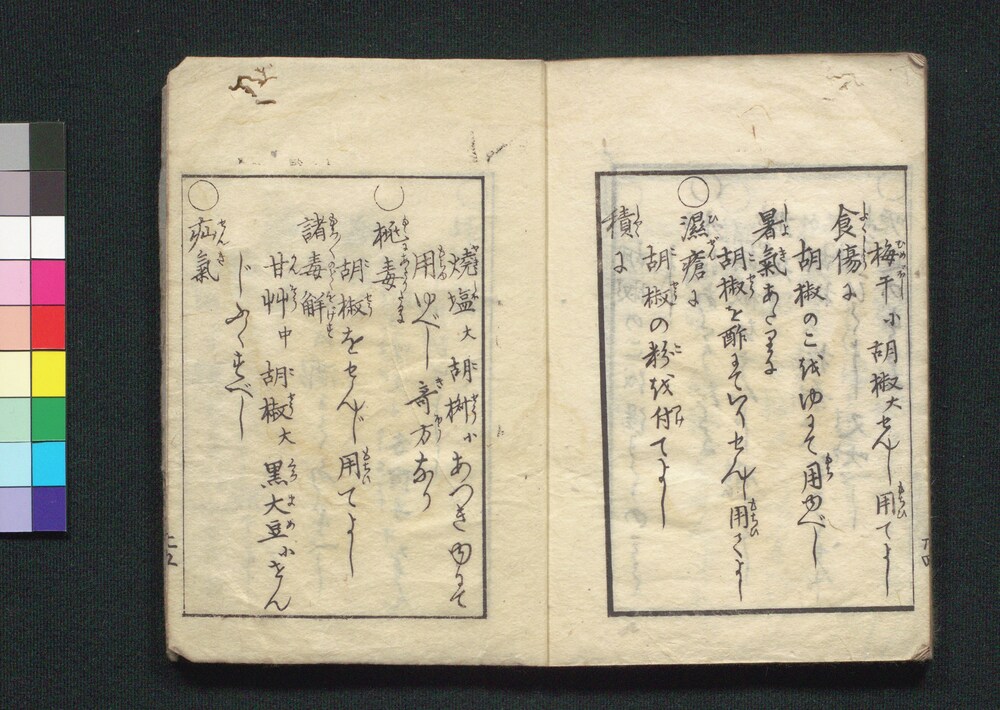 梅干小胡椒大せんじ用てよし
食傷に
胡椒のこを ゆにて用ゆべし
暑氣あたりに
胡椒を酢にていりせんじ用てよし
濕瘡に
胡椒の粉を付てよし
積に
焼塩大胡椒小あつきゆにて
用ゆべし奇方なり
梹毒
胡椒をせんじ用てよし
諸毒解
甘艸中 胡椒大 黒大豆小せん
じ ふくすべし
疝氣